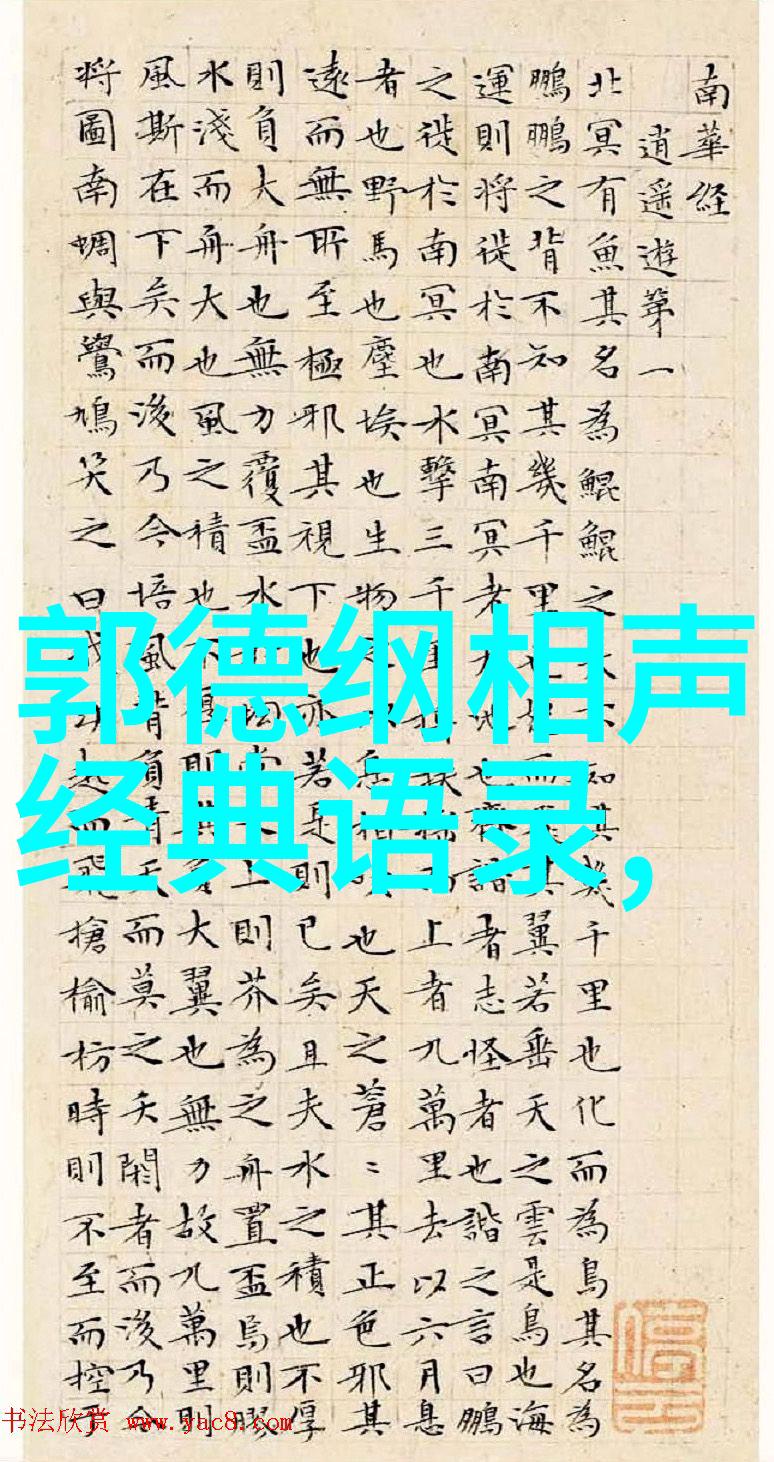 南華经
逍遥遊第一
北冥有魚其名為鯤鯤之大不知其幾千里也化而為鳥其名為
鵬鵬之背不知其幾千里也而其翼若垂天之雲是鳥也海
運則将徙於南冥南冥者天池也齊諧者志怪者也諧之言曰鵬
之徙於南冥也水擊三千里扶上者九萬里去以六月息
者也野馬也塵埃也生物以息相吹也天之蒼〻其正色邪其
遠而無所至極邪其視下也亦若是則已矣且夫水之積也不厚
則負大舟也無力覆盃水坳堂上則芥為之舟置盃焉則膠
水淺而舟大也風之積也不厚則其負大翼也無力故九萬里則
風斯在下矣而後乃今培風背負青天而莫之夭閼者而後乃今
将圖南蜩與鷽鳩笑之曰我起而飛搶榆枋時則不至而控於
郭德纲相声
经典语录,
书法欣赏 www.yac8.com